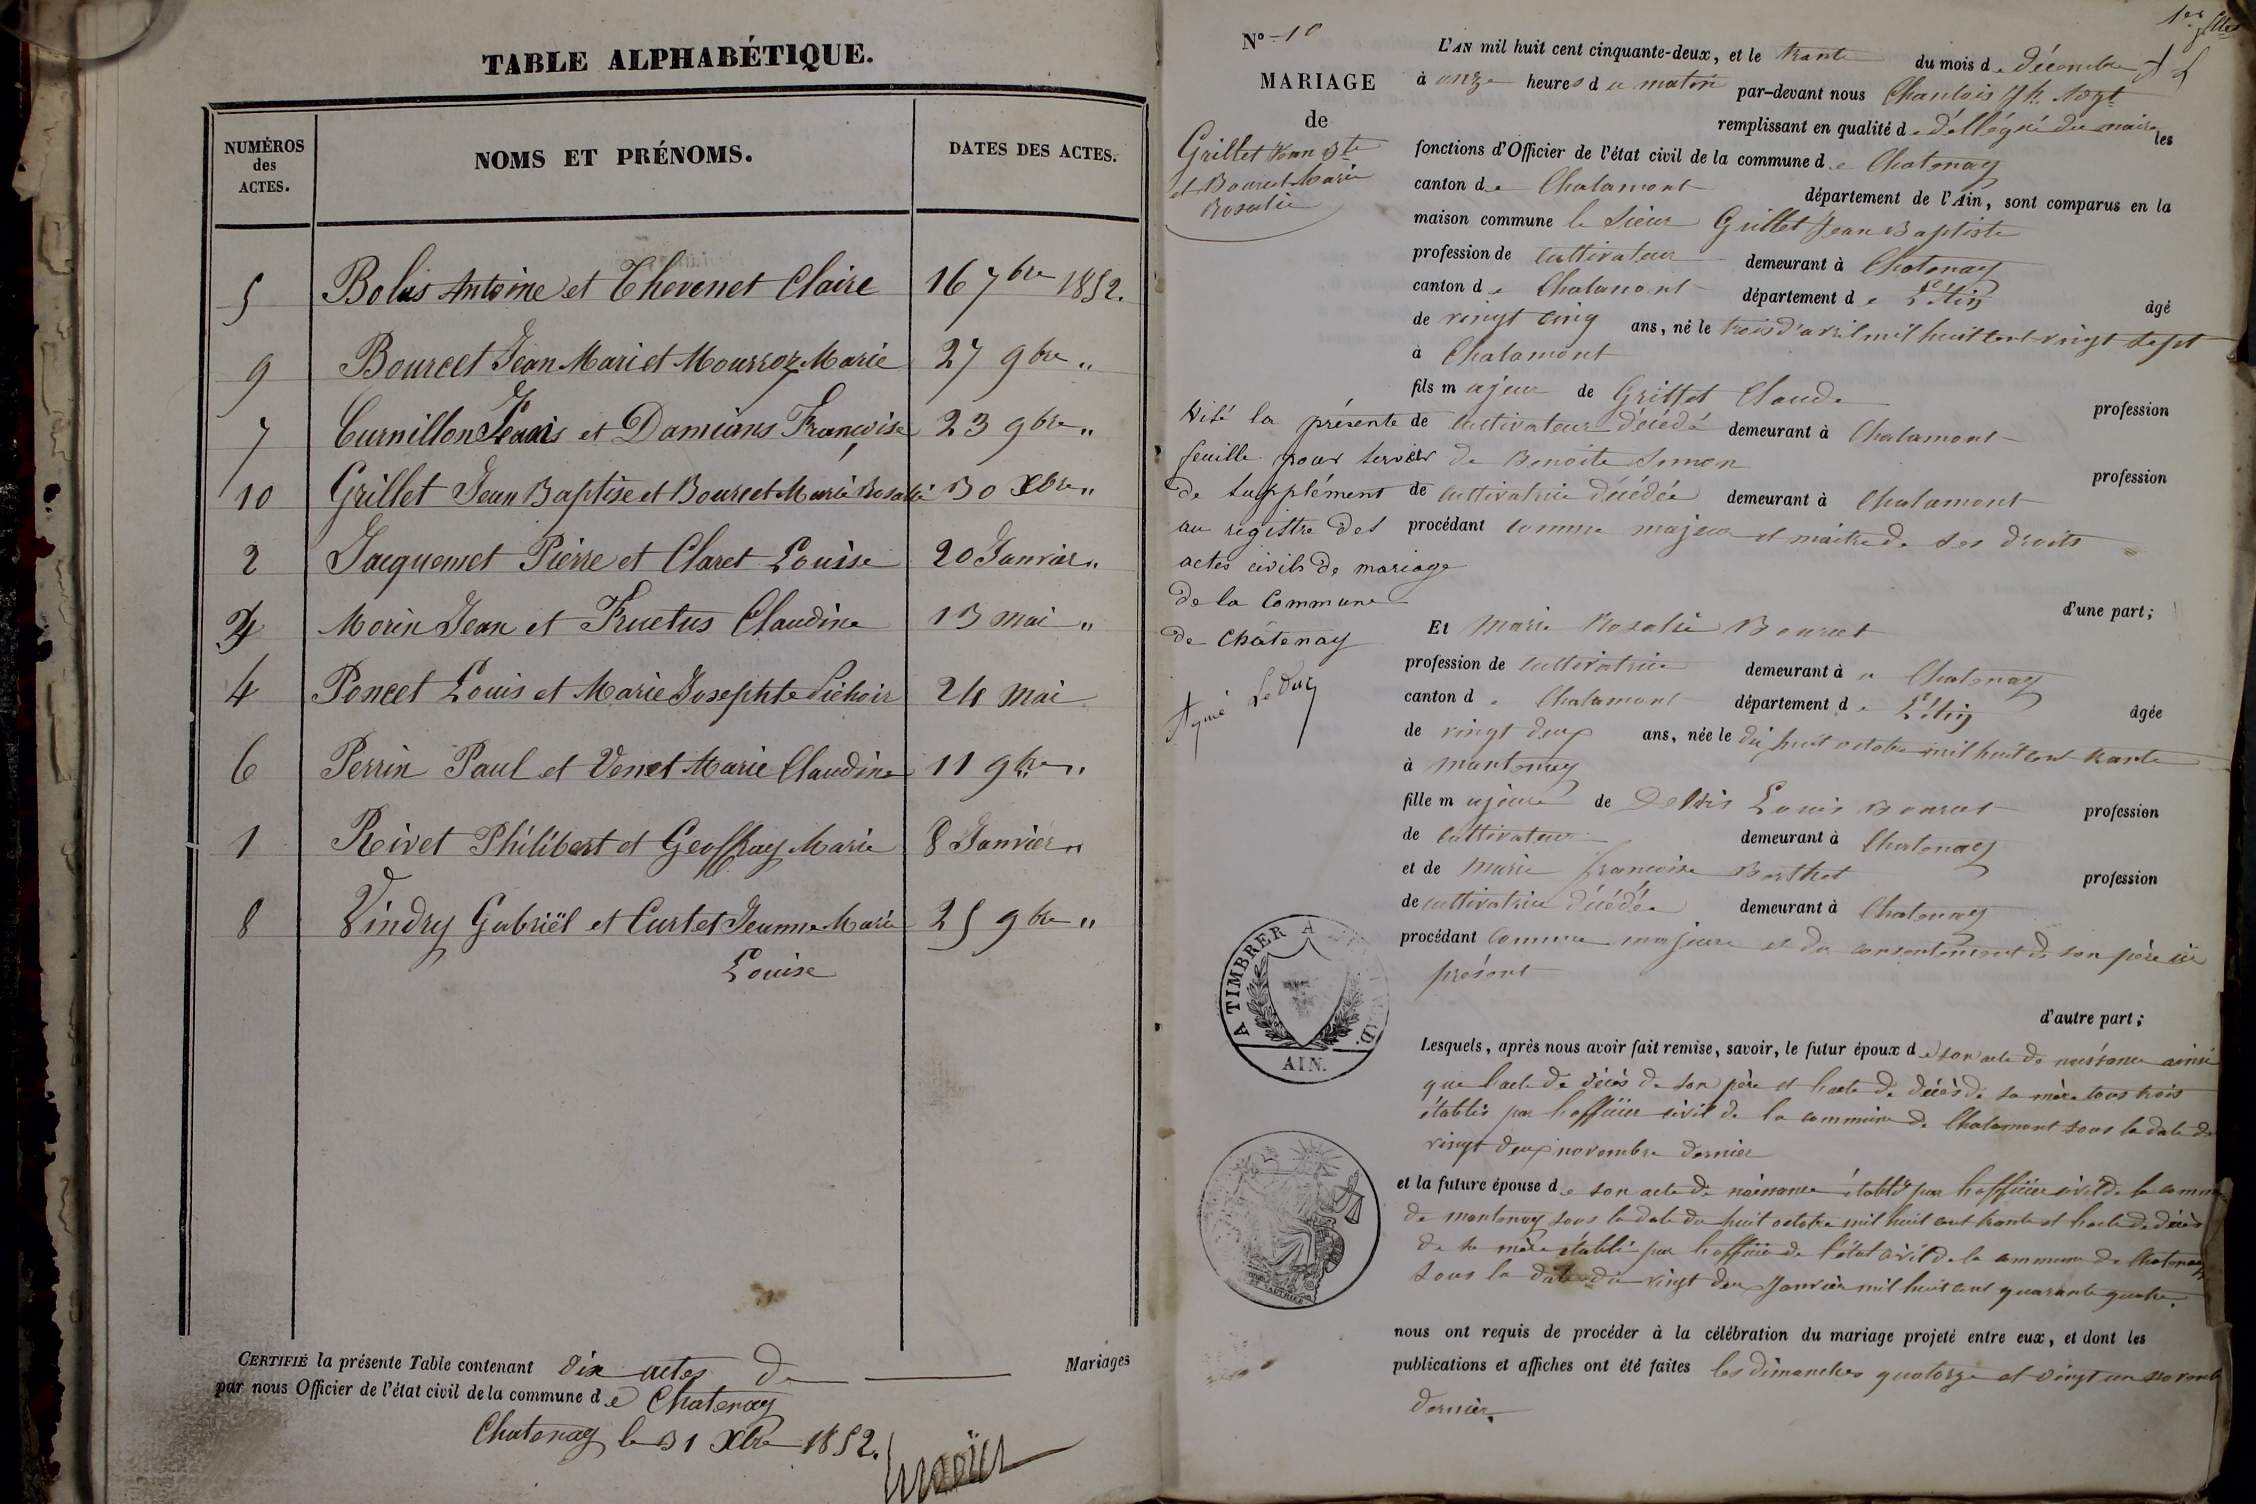 TABLE ALPHABÉTIQUE.
NUMÉROS des ACTES.
NOMS ET PRÉNOMS.
DATES DES ACTES.
5 Bolus Antoine et Thevenet Claire 16 7bre 1852.
9 Bourcet Jean Marie et Mourroz Marie 27 9bre "
7 Curnillon Louis et Damians Françoise 23 9bre "
10 Grillet Jean Baptise et Bourcet Marie Rosalie 30 Xbre "
2 Jacquemet Pierre et Claret Louise 20 Janvier "
3 Morin Jean et Fructus Claudine 13 mai "
4 Poncet Louis et Marie Josephte Pichoir 24 mai
6 Perrin Paul et Venet Marie Claudine 11 9bre "
1 Rivet Philibert et Geoffray Marie 8 Janvier "
8 Vindry Gabriël et Curtet Jeanne Marie 25 9bre "
Louise
CERTIFIÉ la présente Table contenant dix actes de Mariages
par nous Officier de l'état civil de la commune de Chatenay
Chatenay le 31 Xbre 1852.
1er
N° 10
MARIAGE
de
Grillet Jean Bte
et Bourcet Marie
Rosalie
L'AN mil huit cent cinquante-deux, et le trante du mois de décembre
à onze heures du matin par-devant nous Chanlois
remplissant en qualité de déllégué du maire les
fonctions d'Officier de l'état civil de la commune de Chatenay
canton de Chalamont département de l'Ain, sont comparus en la
maison commune le Sieur Grillet Jean Baptiste
profession de cultivateur demeurant à Chatenay
canton de Chalamont département de L'Ain âgé
de vingt cinq ans, né le trois d'avril mil huit cent vingt sept
à Chalamont
fils majeur de Grillet Claude profession
de cultivateur décédé demeurant à Chalamont
de Benoite Simon profession
de cultivatrice décédée demeurant à Chalamont
procédant comme majeur et maitre de ses droits
d'une part;
Visé la présente
feuille pour servir
de supplément
au registre des
actes civils de mariage
de la Commune
de Châtenay
Signé Leduc
Et Marie Rosalie Bourcet
profession de cultivatrice demeurant à Chatenay
canton de Chalamont département de L'Ain âgée
de vingt deux ans, née le dix huit octobre mil huit cent trante
à montenay
fille majeure de Louis Bourcet profession
de cultivateur demeurant à Chatenay
et de Marie françoise Berthet profession
de cultivatrice décédée demeurant à Chatenay
procédant comme majeure et du consentement de son père ici
présent
d'autre part;
A TIMBRER A L'EXTRAORD.
AIN.
Lesquels, après nous avoir fait remise, savoir, le futur époux de son acte de naissance ainsi
que l'acte de décès de son père et l'acte de décès de sa mère tous trois
établis par l'officier civil de la commune de Chalamont sous la date du
vingt deux novembre dernier
et la future épouse de son acte de naissance établi par l'officier civil de la commune
de montenay sous la date du huit octobre mil huit cent trante et l'acte de décès
de sa mère établi par l'officier de l'état civil de la commune de Chatenay
sous la date du vingt deux Janvier mil huit cent quarante quatre.
nous ont requis de procéder à la célébration du mariage projeté entre eux, et dont les
publications et affiches ont été faites les dimanches quatorze et vingt un novembre
dernier.